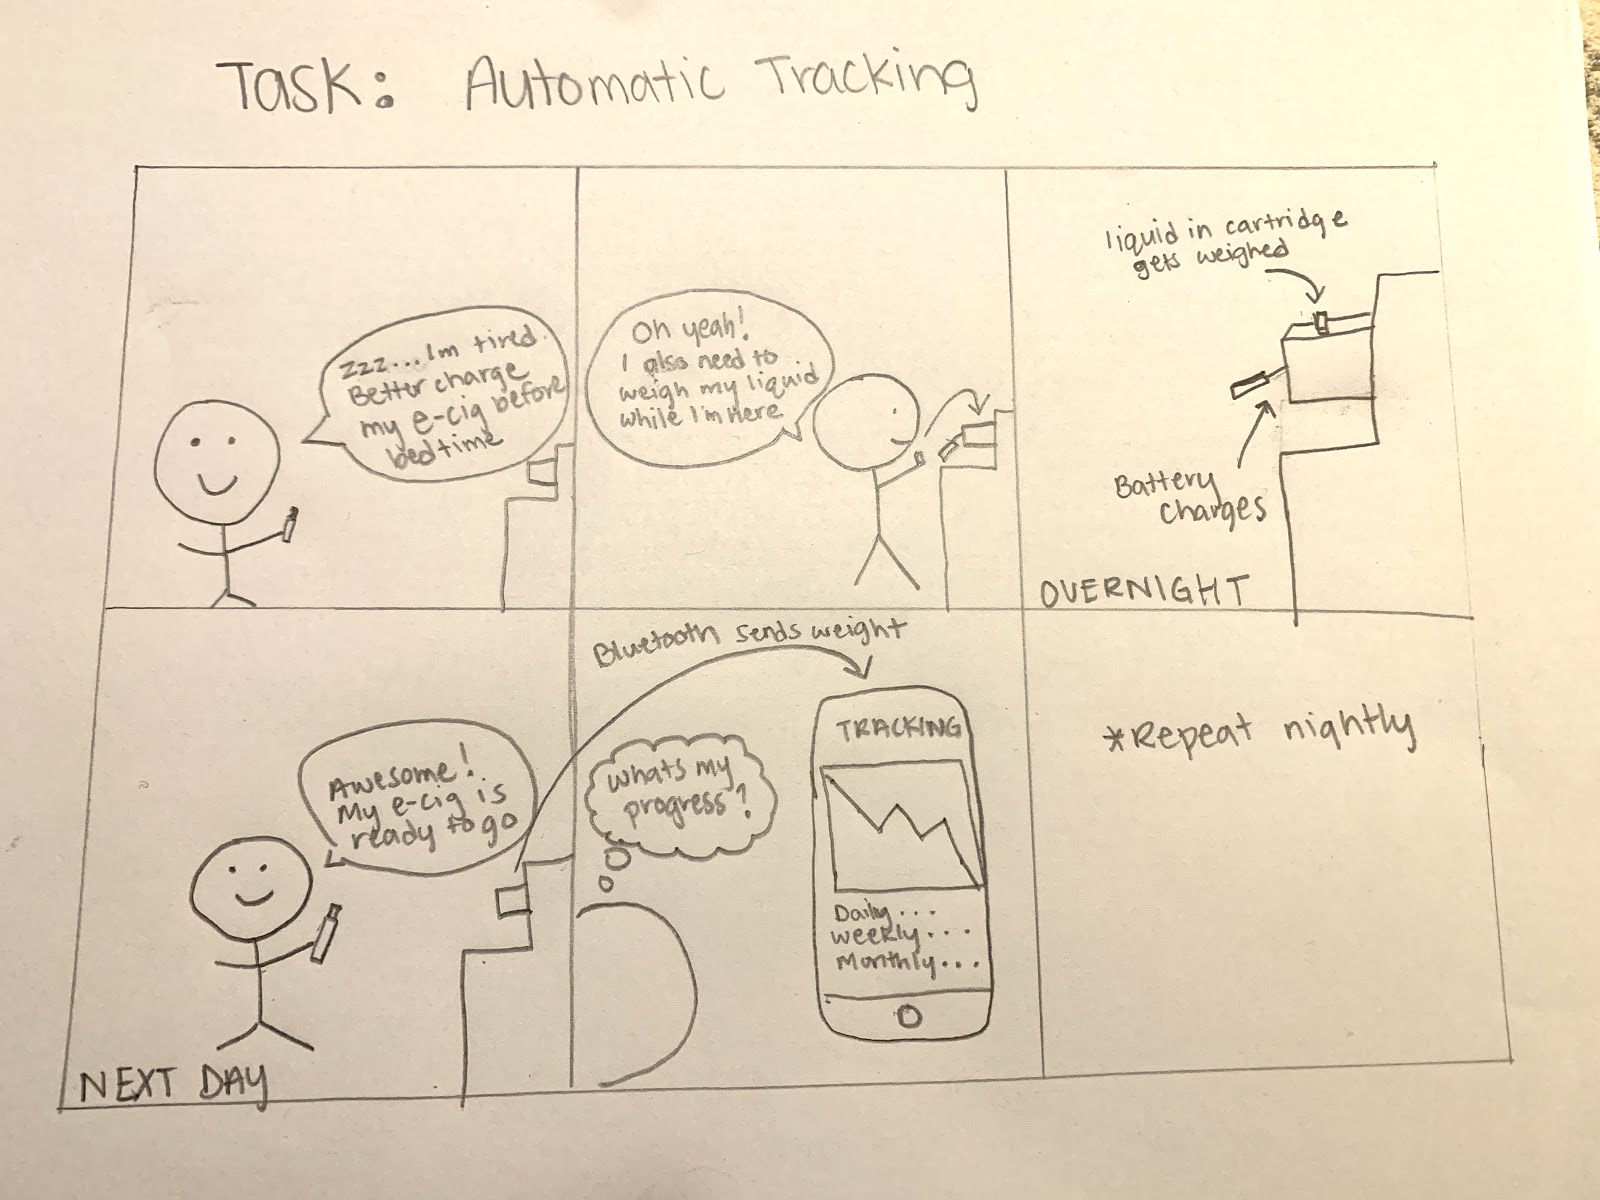 Task: Automatic Tracking
Zzz... Im tired.
Better charge
my e-cig before
bedtime
Oh yeah!
I also need to
weigh my liquid
while I'm here
liquid in cartridge
gets weighed
Battery
charges
OVERNIGHT
Awesome!
My e-cig is
ready to go
NEXT DAY
Bluetooth sends weight
whats my
progress?
TRACKING
Daily...
Weekly...
Monthly...
*Repeat nightly